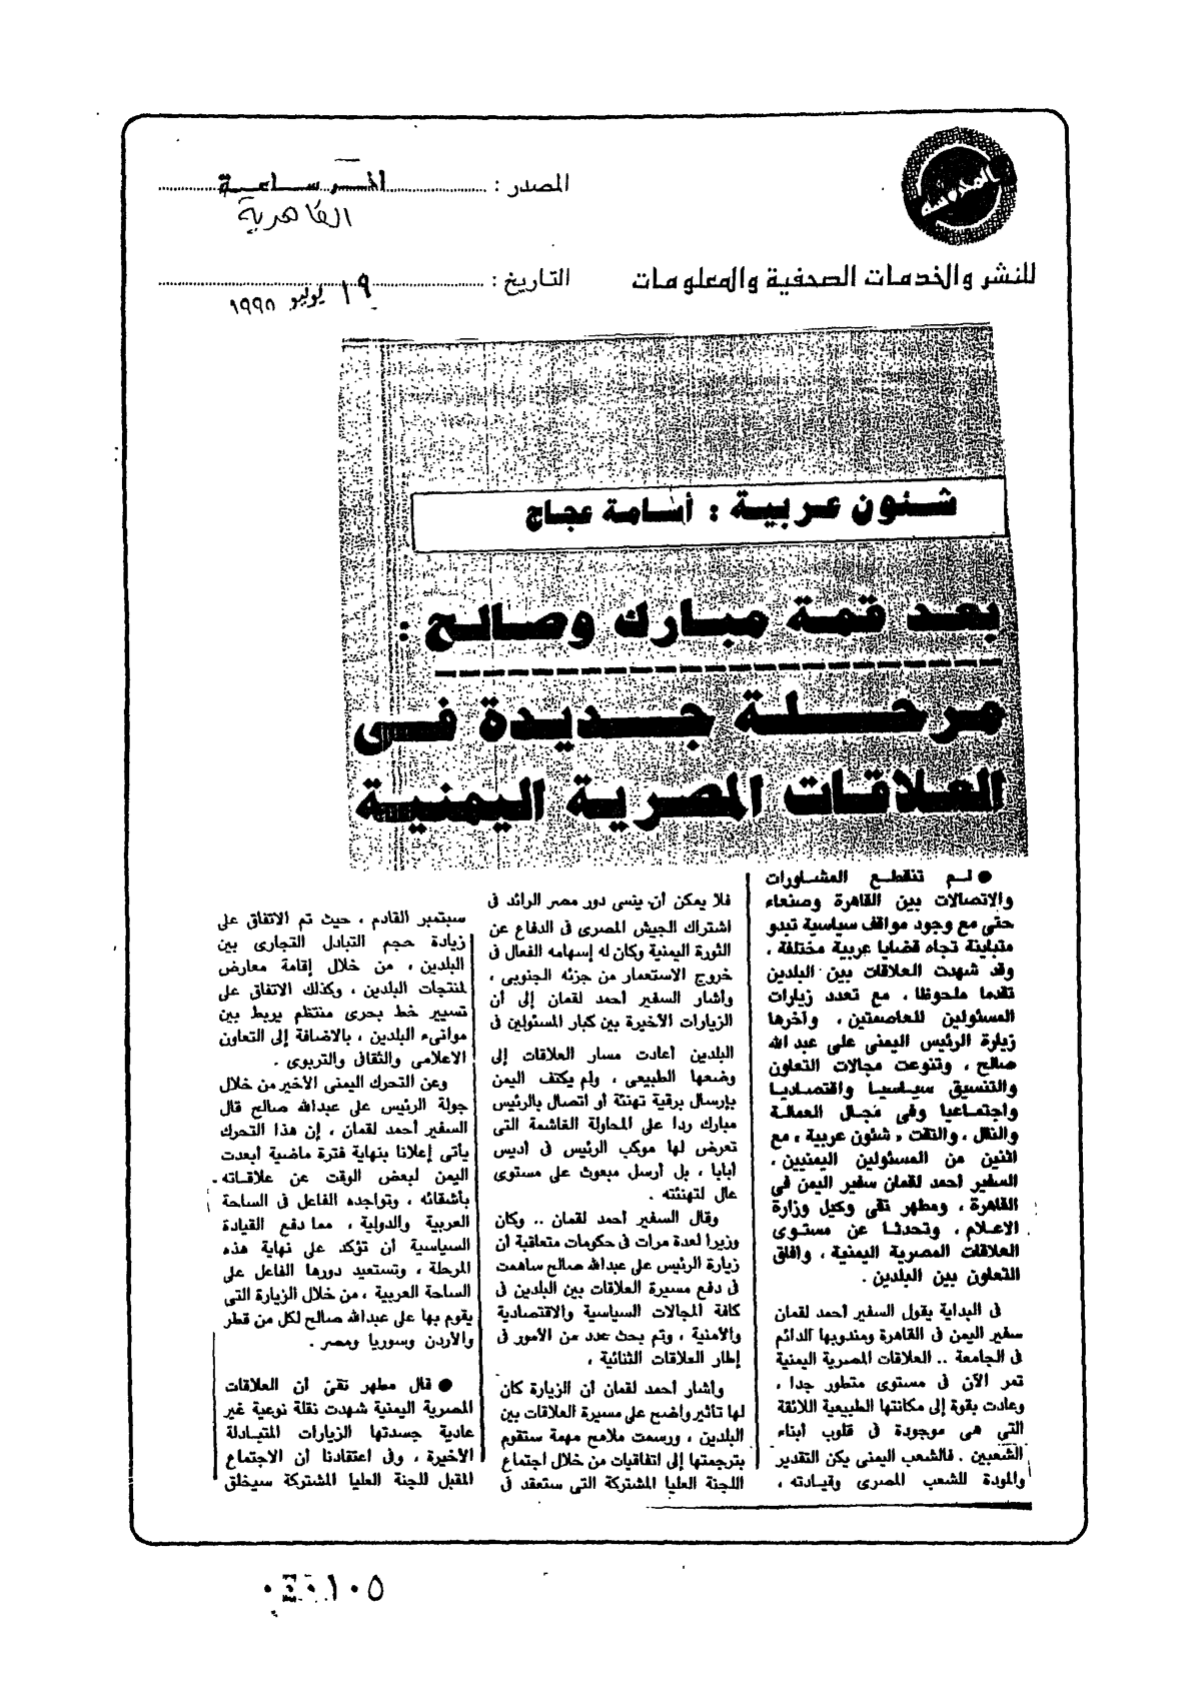 المدينة
للنشر والخدمات الصحفية والمعلومات
المصدر : آخر ساعة
القاهرية
التاريخ : ١٩ يوليو ١٩٩٨
شئون عربية : أسامة عجاج
بعد قمة مبارك وصالح :
مرحلة جديدة فى
العلاقات المصرية اليمنية
● لم تنقطع المشاورات
والاتصالات بين القاهرة وصنعاء
حتى مع وجود مواقف سياسية تبدو
متباينة تجاه قضايا عربية مختلفة ،
وقد شهدت العلاقات بين البلدين
تقدما ملحوظا ، مع تعدد زيارات
المسئولين للعاصمتين ، وآخرها
زيارة الرئيس اليمنى على عبد الله
صالح ، وتنوعت مجالات التعاون
والتنسيق سياسيا واقتصاديا
واجتماعيا وفى مجال العمالة
والنقل ، والتقت ، شئون عربية ، مع
اثنين من المسئولين اليمنيين ،
السفير أحمد لقمان سفير اليمن فى
القاهرة ، ومطهر تقى وكيل وزارة
الاعلام ، وتحدثا عن مستوى
العلاقات المصرية اليمنية ، وآفاق
التعاون بين البلدين .
فى البداية يقول السفير أحمد لقمان
سفير اليمن فى القاهرة ومندوبها الدائم
فى الجامعة .. العلاقات المصرية اليمنية
تمر الآن فى مستوى متطور جدا ،
وعادت بقوة إلى مكانتها الطبيعية اللائقة
التى هى موجودة فى قلوب أبناء
الشعبين . فالشعب اليمنى يكن التقدير
والمودة للشعب المصرى وقيادته ،
فلا يمكن أن ينسى دور مصر الرائد فى
اشتراك الجيش المصرى فى الدفاع عن
الثورة اليمنية وكان له إسهامه الفعال فى
خروج الاستعمار من جزئه الجنوبى ،
وأشار السفير أحمد لقمان إلى أن
الزيارات الأخيرة بين كبار المسئولين فى
البلدين أعادت مسار العلاقات إلى
وضعها الطبيعى ، ولم يكتف اليمن
بإرسال برقية تهنئة أو اتصال بالرئيس
مبارك ردا على المحاولة الغاشمة التى
تعرض لها موكب الرئيس فى أديس
أبابا ، بل أرسل مبعوث على مستوى
عال لتهنئته .
وقال السفير أحمد لقمان .. وكان
وزيرا لعدة مرات فى حكومات متعاقبة أن
زيارة الرئيس على عبدالله صالح ساهمت
فى دفع مسيرة العلاقات بين البلدين فى
كافة المجالات السياسية والاقتصادية
والأمنية ، وتم بحث عدد من الأمور فى
إطار العلاقات الثنائية ،
وأشار أحمد لقمان أن الزيارة كان
لها تأثير واضح على مسيرة العلاقات بين
البلدين ، ورسمت ملامح مهمة ستقوم
بترجمتها إلى اتفاقيات من خلال اجتماع
اللجنة العليا المشتركة التى ستعقد فى
سبتمبر القادم ، حيث تم الاتفاق على
زيادة حجم التبادل التجارى بين
البلدين ، من خلال إقامة معارض
لمنتجات البلدين ، وكذلك الاتفاق على
تسيير خط بحرى منتظم يربط بين
موانىء البلدين ، بالاضافة إلى التعاون
الاعلامى والثقافى والتربوى .
وعن التحرك اليمنى الأخير من خلال
جولة الرئيس على عبدالله صالح قال
السفير أحمد لقمان ، إن هذا التحرك
يأتى إعلانا بنهاية فترة ماضية أبعدت
اليمن لبعض الوقت عن علاقاته
بأشقائه ، وتواجده الفاعل فى الساحة
العربية والدولية ، مما دفع القيادة
السياسية أن تؤكد على نهاية هذه
المرحلة ، وتستعيد دورها الفاعل على
الساحة العربية ، من خلال الزيارة التى
يقوم بها على عبدالله صالح لكل من قطر
والأردن وسوريا ومصر .
● قال مطهر تقى أن العلاقات
المصرية اليمنية شهدت نقلة نوعية غير
عادية جسدتها الزيارات المتبادلة
الأخيرة ، وفى اعتقادنا أن الاجتماع
المقبل للجنة العليا المشتركة سيخلق